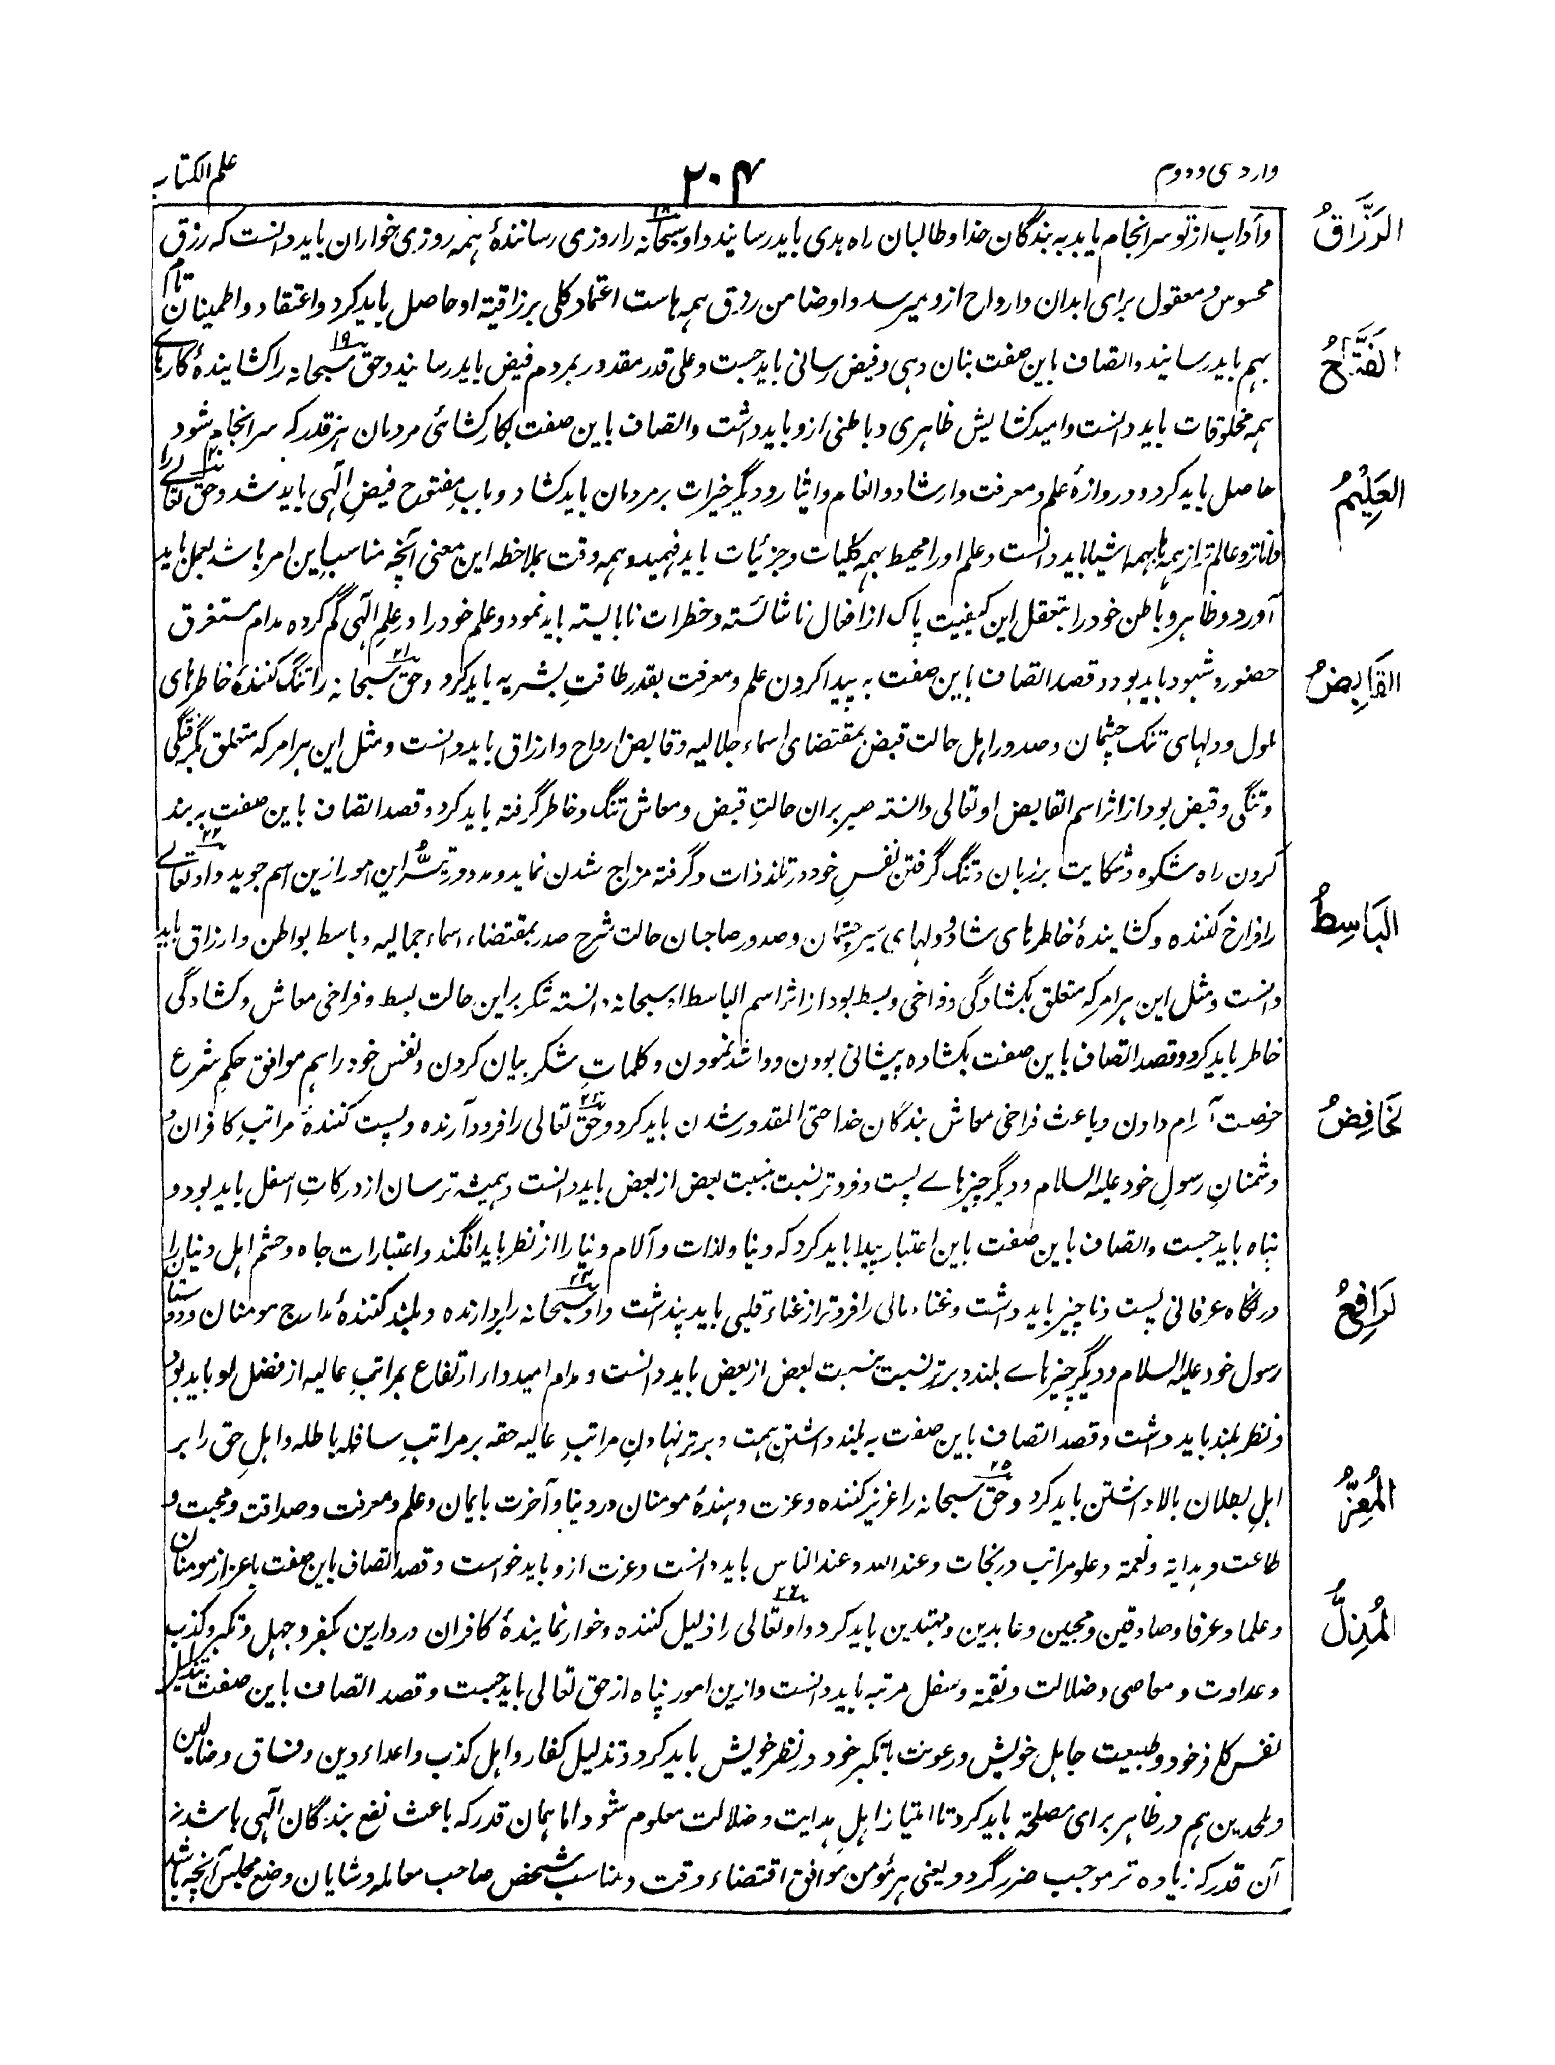 وارد سی و دوم
۲۰۴
علم الکتاب
الرَزَّاقُ
و آداب از تو سرانجام یابد به بندگان خدا و طالبان راه هدی باید رسانید و او سبحانه را روزی رسانندۀ همه روزی خواران باید دانست که رزق
محسوس و معقول برای ابدان و ارواح ازو میرسد و او ضامن رزق همه هاست اعتماد کلی بر رزاقیة او حاصل باید کرد و اعتقاد و اطمینان تام
الفَتَّاحُ
بهم باید رسانید و اتصاف باین صفت بنان دهی و فیض رسانی باید جست و علی قدر مقدور بمردم فیض باید رسانید و حق سبحانه را کشایندۀ کارهای
همه مخلوقات باید دانست و امید کشایش ظاهری و باطنی ازو باید داشت و اتصاف باین صفت بکار کشائی مردمان هر قدر که سرانجام شود
حاصل باید کرد و دروازۀ علم و معرفت و ارشاد و انعام و ایثار و دیگر خیرات بر مردمان باید کشاد و باب مفتوح فیضِ الٰهی باید شد و حق تعالے را
العَلِیْمُ
داناتر و عالم تر از همه ها بهمه اشیا باید دانست و علم او را محیط بهمه کلیات و جزئیات باید فهمید و همه وقت بملاحظه این معنی آنچه مناسب این امر باشد بعمل باید
آورد و ظاهر و باطن خود را بتعقل این کیفیت پاک از افعال ناشائسته و خطرات نابایسته باید نمود و علم خود را در علمِ الٰهی گم کرده مدام مستغرق
حضور و شهود باید بود و قصد اتصاف باین صفت به پیدا کردن علم و معرفت بقدر طاقتِ بشریه باید کرد و حق سبحانه را تنگ کنندۀ خاطرهای
القَابِضُ
ملول و دلهای تنگ چشمان و صدور اهل حالت قبض بمقتضای اسماء جلالیه و قابض ارواح و ارزاق باید دانست و مثل این هر امر که متعلق بگرفتگی
و تنگی و قبض بود از اثر اسم القابض او تعالی دانسته صبر بران حالتِ قبض و معاش تنگ و خاطر گرفته باید کرد و قصد اتصاف باین صفت به بند
کردن راه شکوه و شکایت بر زبان و تنگ گرفتن نفسِ خود در تلذذات و گرفته مزاج شدن نماید و مدد در تیسّرِ این امور ازین اسم جوید و او تعالے
البَاسِطُ
را فراخ کننده و کشایندۀ خاطرهای شاد و دلهای سیر چشمان و صدور صاحبان حالت شرح صدر بمقتضاء اسماء جمالیه و باسط بواطن و ارزاق باید
دانست و مثل این هر امر که متعلق بکشادگی و فراخی و بسط بود از اثر اسم الباسط او سبحانه دانسته شکر بر این حالت بسط و فراخی معاش و کشادگی
خاطر باید کرد و قصد اتصاف باین صفت بکشاده پیشانی بودن و واشد نمودن و کلماتِ شکر بیان کردن و نفس خود را هم موافق حکمِ شرع
خَافِضُ
رخصت آرام دادن و باعث فراخی معاش بندگان خدا حتی المقدور شدن باید کرد و حق تعالی را فرود آرنده و پست کنندۀ مراتبِ کافران و
دشمنانِ رسولِ خود علیه السلام و دیگر چیز هاے پست و فروتر نسبت بنسبت بعض از بعض باید دانست و همیشه ترسان از درکاتِ اسفل باید بود و
پناه باید جست و اتصاف باین صفت باین اعتبار پیدا باید کرد که دنیا و لذات و آلام دنیا را از نظر باید افگند و اعتبارات جاه و حشم اهل دنیا را
رَافِعُ
در نگاه عرفانی پست و ناچیز باید داشت و غناء مالی را فروتر از غناء قلبی باید پنداشت و او سبحانه را بردارنده و بلند کنندۀ مدارج مومنان و دوستان
رسول خود علیه السلام و دیگر چیز هاے بلند و برتر نسبت بنسبت بعض از بعض باید دانست و مدام امیدوار ارتفاع بمراتبِ عالیه از فضل او باید بود
و نظر بلند باید داشت و قصد اتصاف باین صفت به بلند داشتنِ همت و برتر نهادنِ مراتبِ عالیه حقه بر مراتبِ سافله باطله و اهلِ حق را بر
اهلِ بطلان بالا داشتن باید کرد و حق سبحانه را عزیز کننده و عزت دهندۀ مومنان در دنیا و آخرت بایمان و علم و معرفت و صداقت و محبت و
المُعِزُّ
طاعت و هدایة و نعمة و علو مراتب درنجات و عند الله و عند الناس باید دانست و عزت ازو باید خواست و قصد اتصاف باین صفت باعزاز مومنان
و علما و عرفا و صادقین و محبین و عابدین و مهتدین باید کرد و او تعالی را ذلیل کننده و خوار نمایندۀ کافران در دارین بکفر و جهل و تکبر و کذب
المُذِلُّ
و عداوت و معاصی و ضلالت و نقمة و سفل مرتبه باید دانست و ازین امور پناه از حق تعالی باید جست و قصد اتصاف باین صفت بتذلیل
نفس کافر خود و طبیعت جاهل خویش و رعونت با تکبر خود در نظر خویش باید کرد و تذلیل کفار و اهل کذب و اعداء دین و فساق و ضالین
و ملحدین هم در ظاهر برای مصلحة باید کرد تا امتیاز اهلِ هدایت و ضلالت معلوم شود اما همان قدر که باعث نفع بندگان الٰهی باشد نه
آن قدر که زیاده تر موجب ضرر گردد یعنی هر مؤمن موافق اقتضاء وقت و مناسب شخص صاحب معامله و شایان وضع مجلس آنچه باشد